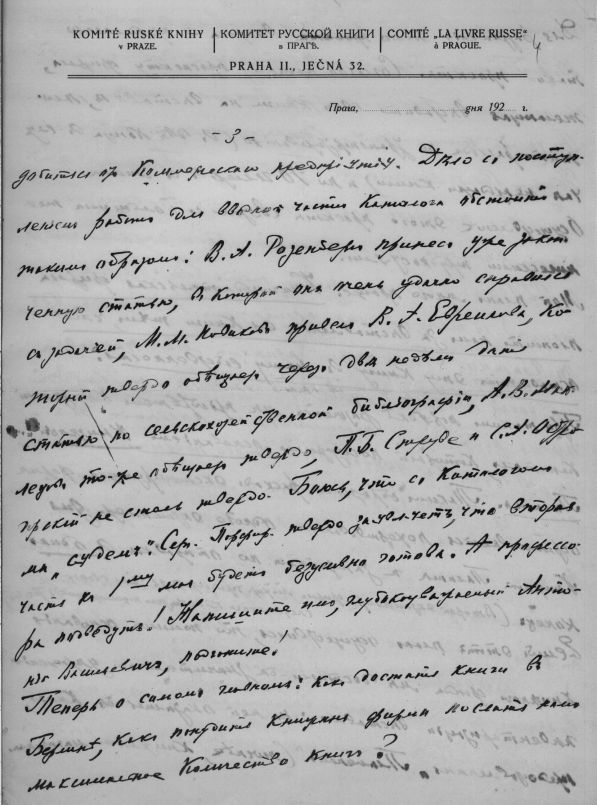 KOMITÉ RUSKÉ KNIHY
v PRAZE.
КОМИТЕТ РУССКОЙ КНИГИ
в ПРАГѢ.
COMITÉ „LA LIVRE RUSSE"
à PRAGUE.
4
PRAHA II., JEČNÁ 32.
Прага, дня 192 г.
- 3 -
добиться въ Коммерческаго предпріятія. Дѣло съ поступ-
леніемъ работъ для вводной части Каталога обстоитъ
такимъ образомъ: В. А. Розенбергъ принесъ уже закон-
ченную статью, въ которой онъ очень удачно справился
съ задачей, М. М. Новиковъ привелъ В. А. Евреинова, ко-
торый твердо обѣщаетъ черезъ двѣ недѣли дать
статью по сельскохозяйственной библіографіи, А. В.
тоже обѣщаетъ твердо, П. Б. Струве и С. А. Остро-
не столь твердо. Боюсь, что съ Каталогомъ
мы „сядемъ". Сер. Порфир. твердо что вторая
часть къ 1му мая будетъ безусловно готова. А профессо-
ра подведутъ! Напишите имъ, глубокоуважаемый Анто-
ній Васильевичъ, подгоните!
Теперь о самомъ главномъ: Какъ достать книги въ
Берлинѣ, какъ побудить книжныя фирмы послать намъ
максимальное количество книгъ?